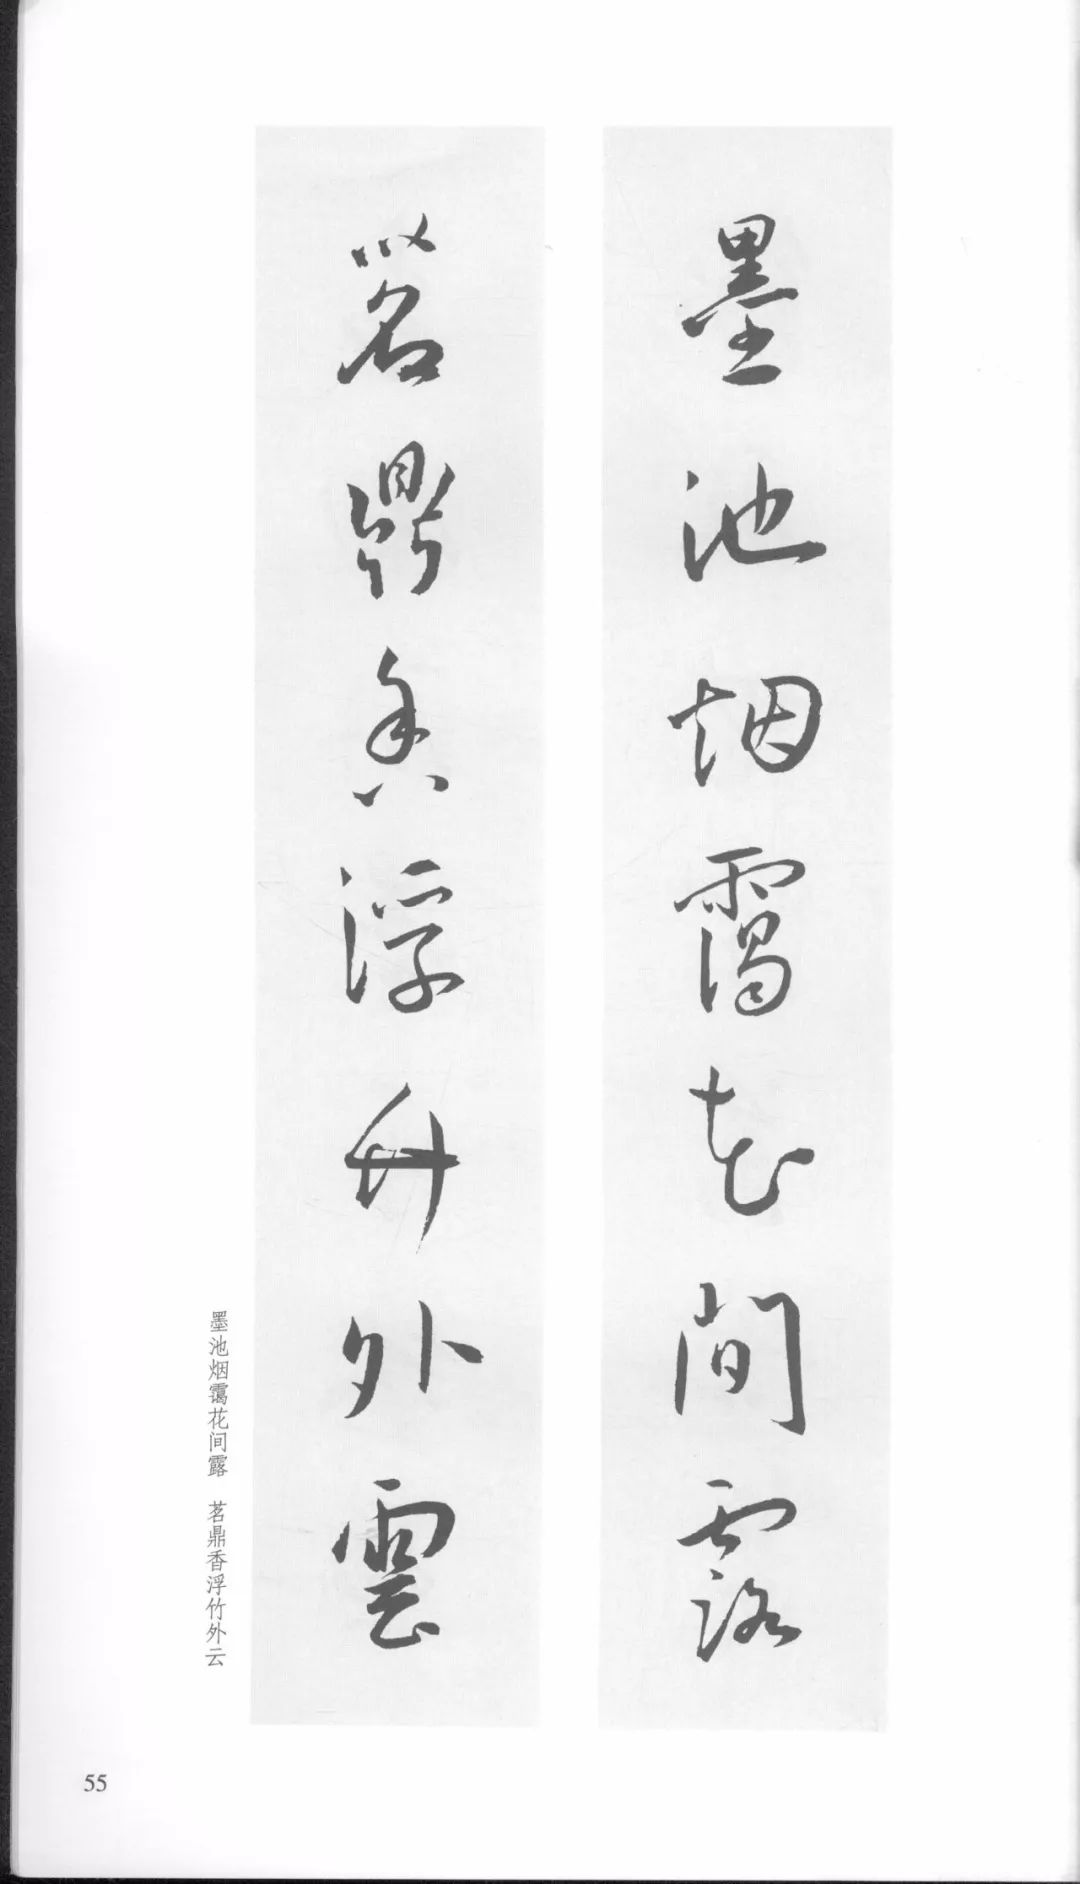 墨池烟霭花间露
茗鼎香浮竹外雲
墨池烟霭花间露 茗鼎香浮竹外云
55